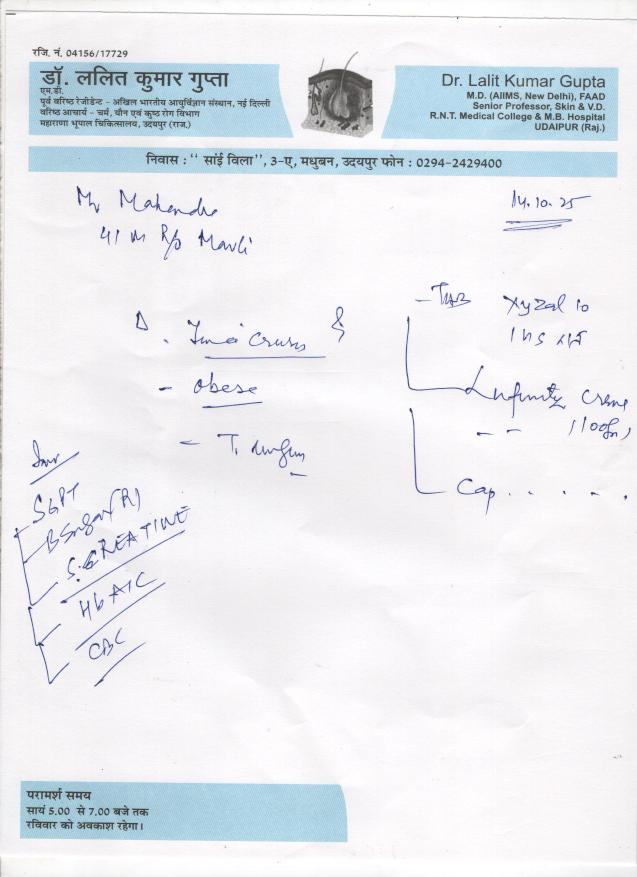 रजि. नं. 04156/17729
डॉ. ललित कुमार गुप्ता
एम.डी.
पूर्व वरिष्ठ रेजीडेन्ट - अखिल भारतीय आयुर्विज्ञान संस्थान, नई दिल्ली
वरिष्ठ आचार्य - चर्म, यौन एवं कुष्ठ रोग विभाग
महाराणा भूपाल चिकित्सालय, उदयपुर (राज.)
Dr. Lalit Kumar Gupta
M.D. (AIIMS, New Delhi), FAAD
Senior Professor, Skin & V.D.
R.N.T. Medical College & M.B. Hospital
UDAIPUR (Raj.)
निवास : " सांई विला", ३-ए, मधुबन, उदयपुर फोन : 0294-2429400
Mr Mahendra
14.10.25
41 M R/o Mavli
- TAB Xyzal 10
Tinea Cruris
- Obese
Cream
(100gm)
- T.
Cap. . . . .
Inv
SGPT
B Sugar (R)
S. CREATINE
HbA1C
CBC
परामर्श समय
सायं 5.00 से 7.00 बजे तक
रविवार को अवकाश रहेगा।